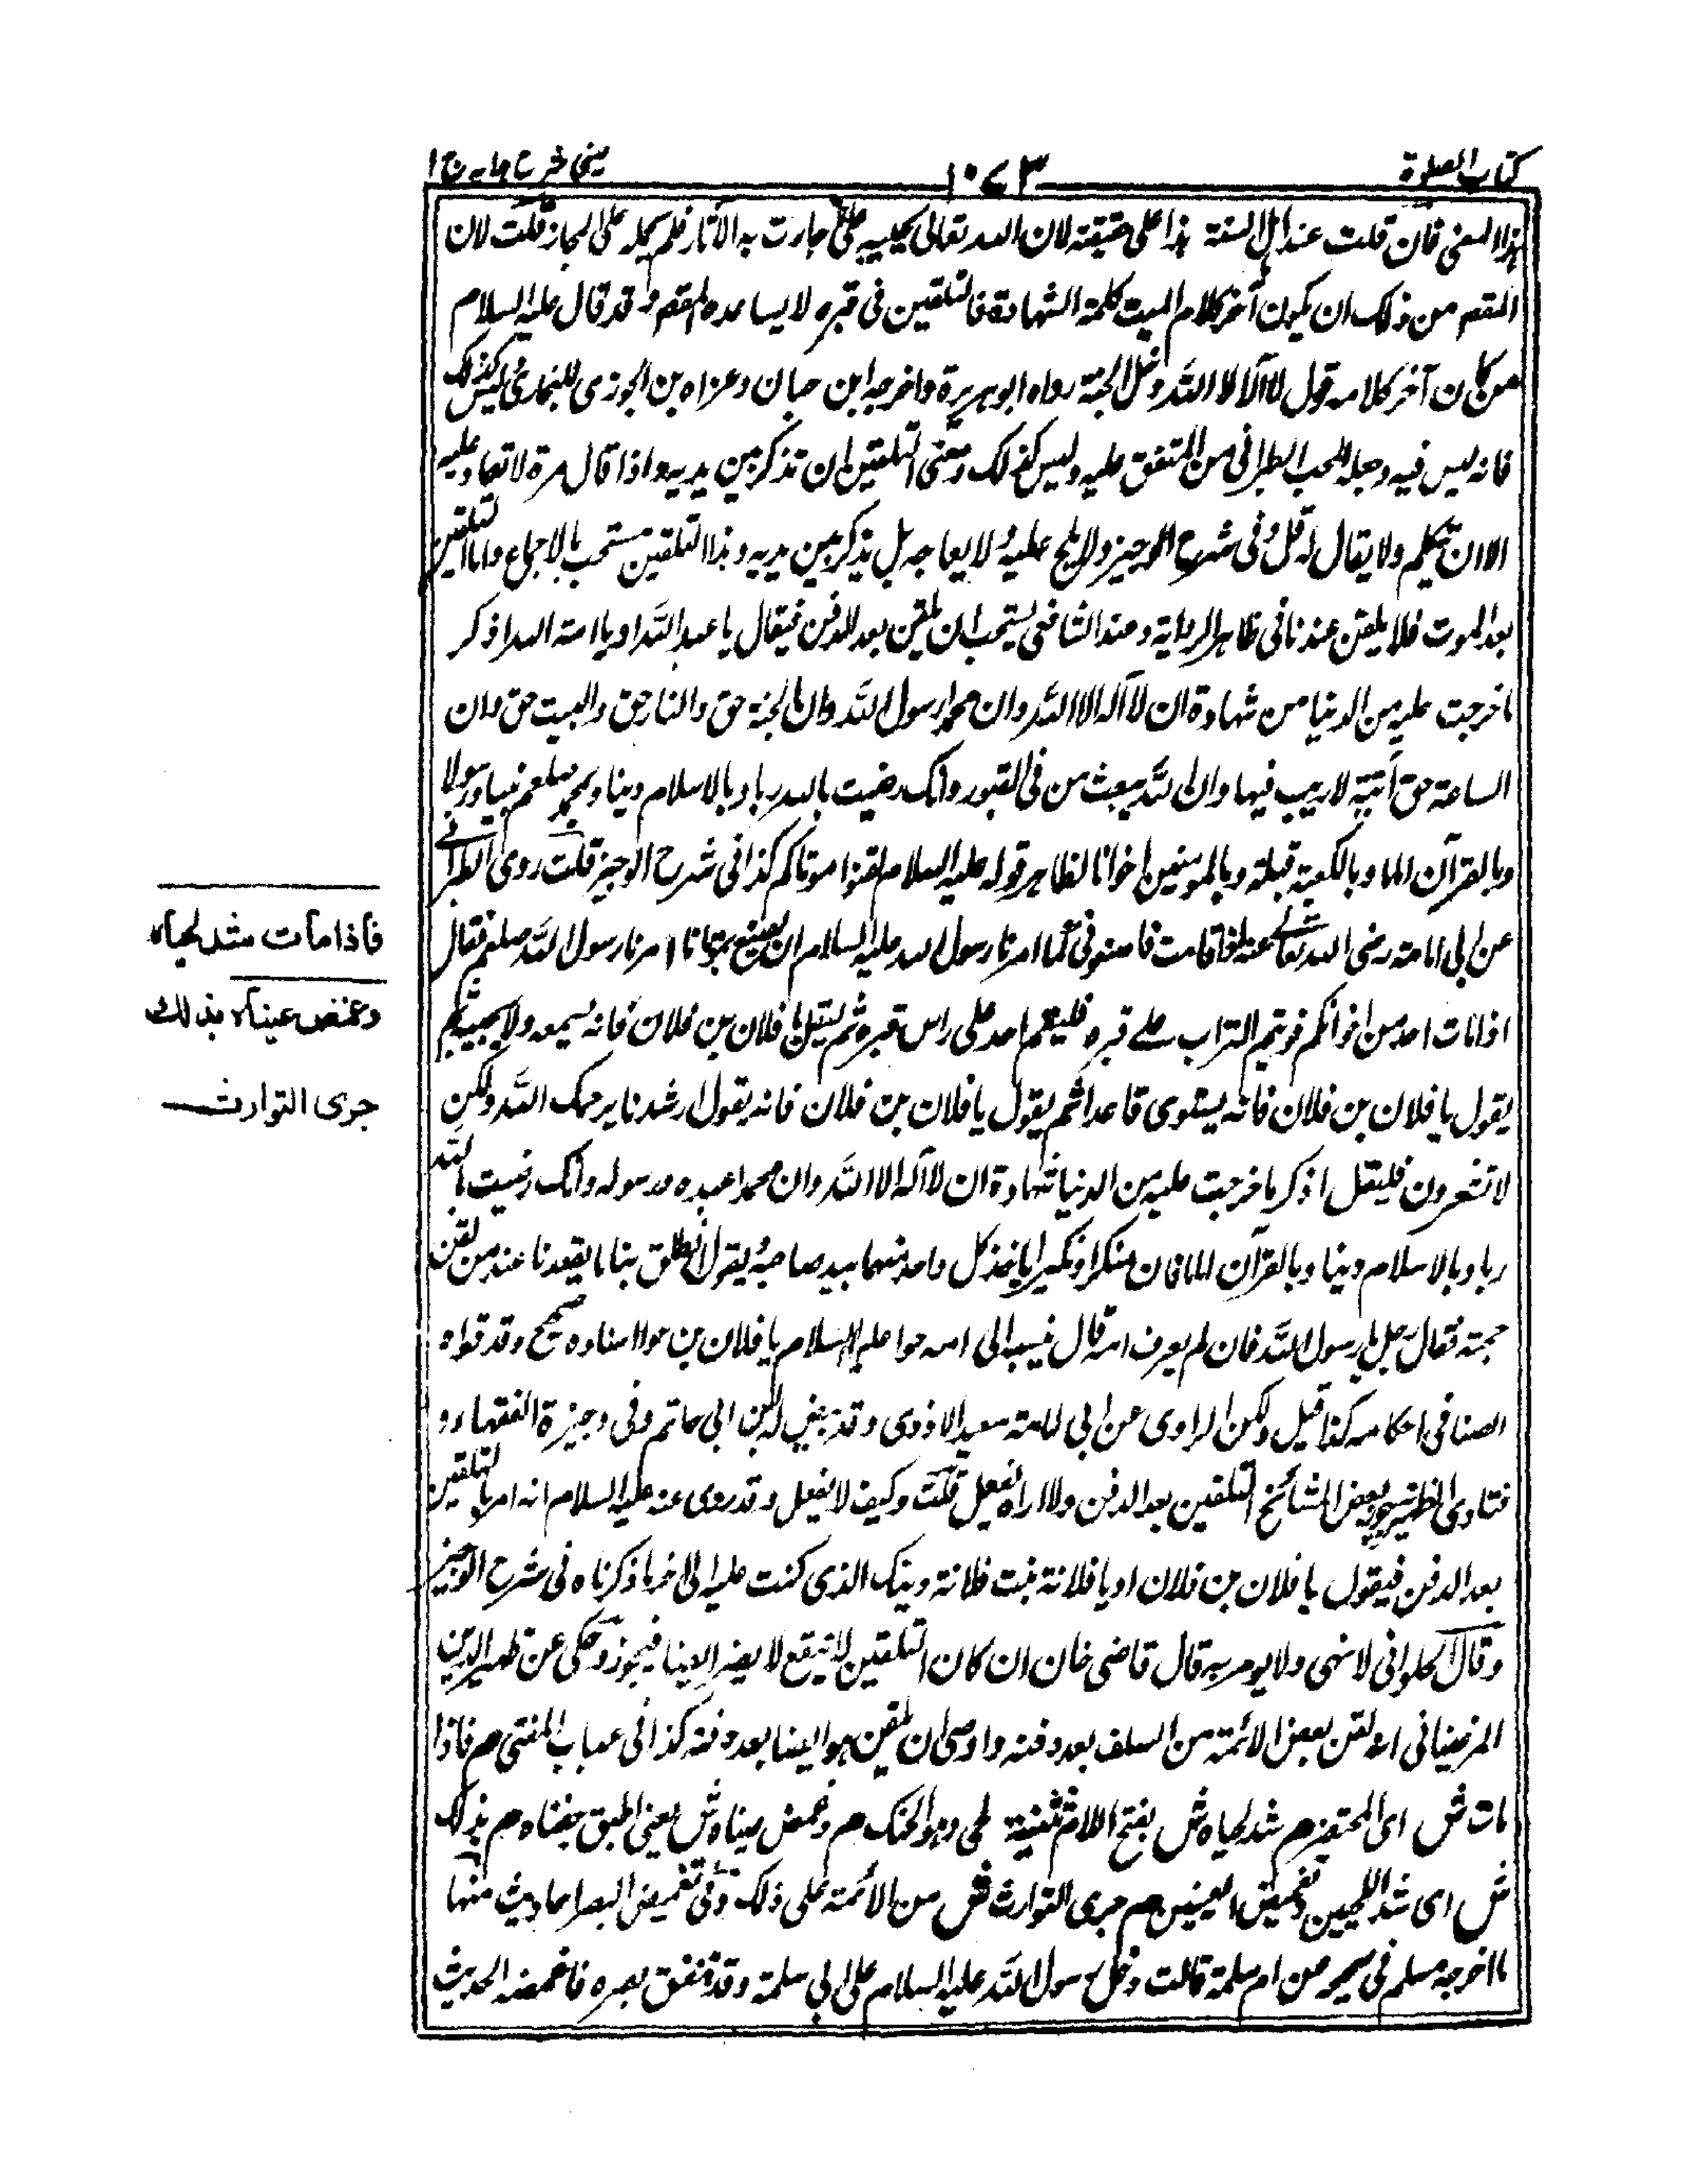 كتاب الصلوة
١٠٧٣
عينى شرح هدايه ج ١
هذا المعنى فان قلت عند اهل السنة هذا على حقيقته لان الله تعالى يحييه على ما جاءت به الآثار فلم يحمله على المجاز قلت لان
المقصم من ذلك ان يكون آخر كلام الميت كلمة الشهادة فالتلقين فى قبره لا يساعده المقصم وقد قال عليه السلام
من كان آخر كلامه قول لا اله الا الله دخل الجنة رواه ابو هريرة واخرجه ابن حبان وعزاه بن الجوزى للبخارى وليس كذلك
فانه ليس فيه وجعله المحب الطبرانى من المتفق عليه وليس كذلك ومعنى التلقين ان تذكر بين يديه واذا قال مرة لا تعاد عليه
الا ان تكلم ولا يقال له قل وفى شرح الوجيز ولا يلح عليه ولا يعاجه بل يذكر بين يديه وهذا التلقين مستحب بالاجماع واما التلقين
بعد الموت فلا يلقن عندنا فى ظاهر الرواية وعند الشافعى يستحب ان يلقن بعد الدفن فيقال يا عبد الله او يا امة الله اذكر
ما خرجت عليه من الدنيا من شهادة ان لا اله الا الله وان محمدا رسول الله وان الجنة حق والنار حق والبعث حق وان
الساعة حق آتية لا ريب فيها وان الله يبعث من فى القبور وانك رضيت بالله ربا وبالاسلام دينا وبمحمد صلعم نبيا ورسولا
وبالقرآن اماما وبالكعبة قبلة وبالمومنين اخوانا لظاهر قوله عليه السلام لقنوا موتاكم كذا فى شرح الوجيز قلت روى الطبرانى
عن ابى امامة رضى الله تعالى عنه اذا انا مت فاصنعوا فى كما امرنا رسول الله عليه السلام ان نصنع بموتانا امرنا رسول الله صلعم فقال
اذا مات احد من اخوانكم فسويتم التراب على قبره فليقم احدكم على راس قبره ثم ليقل يا فلان بن فلان فانه يسمعه ولا يجيب ثم
يقول يا فلان بن فلان فانه يستوى قاعدا ثم يقول يا فلان بن فلان فانه يقول ارشدنا يرحمك الله ولكن
لا تشعرون فليقل اذكر ما خرجت عليه من الدنيا شهادة ان لا اله الا الله وان محمدا عبده ورسوله وانك رضيت بالله
ربا وبالاسلام دينا وبالقرآن اماما فان منكرا ونكيرا ياخذ كل واحد منهما بيد صاحبه ويقول انطلق بنا ما يقعدنا عند من لقن
حجته فقال رجل يا رسول الله فان لم يعرف امه قال ينسبه الى امه حوا عليها السلام يا فلان بن حوا اسناده صحيح وقد قواه
الضيا فى احكامه كذا قيل ولكن الراوى عن ابى امامة سعيد الازدى وقد بيض له ابن ابى حاتم وفى وجيزة الفقهاء و
فتاوى الظهيرية يجوز بعض المشائخ التلقين بعد الدفن ولا اراه يفعل قلت وكيف لا يفعل وقد روى عنه عليه السلام انه امر بالتلقين
بعد الدفن فيقول يا فلان بن فلان او يا فلانة بنت فلانة دينك الذى كنت عليه الى آخر ما ذكرناه فى شرح الوجيز
وقال الحلوانى لا نهى ولا يومر به قال قاضى خان ان كان التلقين لا ينفع لا يضر ايضا فيجوز وحكى عن ظهير الدين
المرغينانى انه لقن بعض الائمة من السلف بعد دفنه واوصى ان يلقن هو ايضا بعد دفنه كذا فى عباب المفتى م فاذا
مات ش اى المحتضر م شد لحياه ش بفتح اللام تثنية لحى وهو الحنك م وغمض عيناه ش يعنى اطبق جفناه م بذلك
ش اى شد اللحيين وتغميض العينين م جرى التوارث ش من الائمة على ذلك وفى تغميض البصر احاديث منها
ما اخرجه مسلم فى صحيحه عن ام سلمة قالت دخل رسول الله عليه السلام على ابى سلمة وقد شق بصره فاغمضه الحديث
فاذا مات شد لحياه
وغمض عيناه بذلك
جرى التوارث